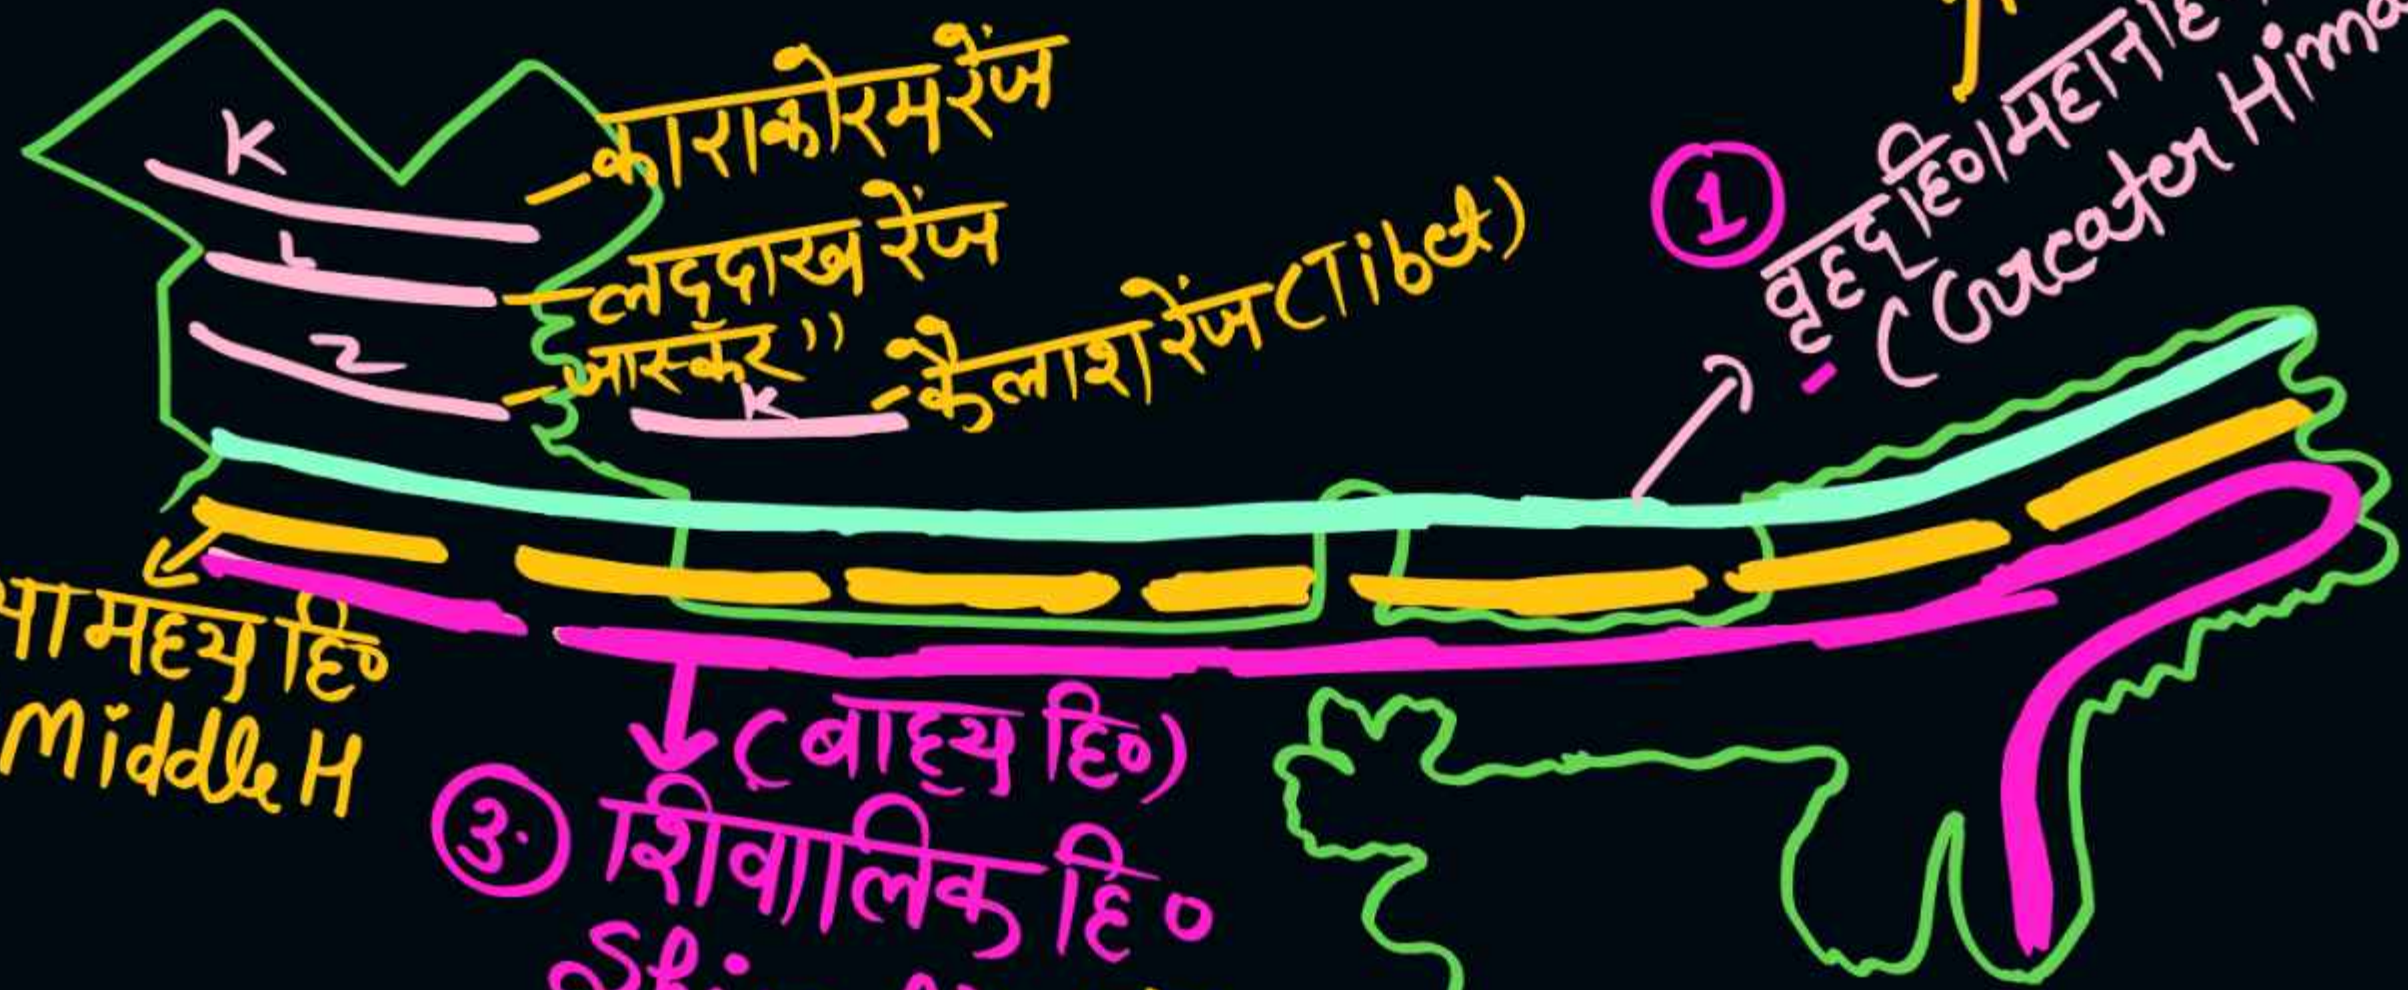 K
काराकोरम रेंज
L
लद्दाख रेंज
Z
जास्कॅर "
K
कैलाश रेंज (Tibet)
1
वृहद हि०/महान हि
(Greater Hima
या मध्य हि०
Middle H
(बाह्य हि०)
3. शिवालिक हि०